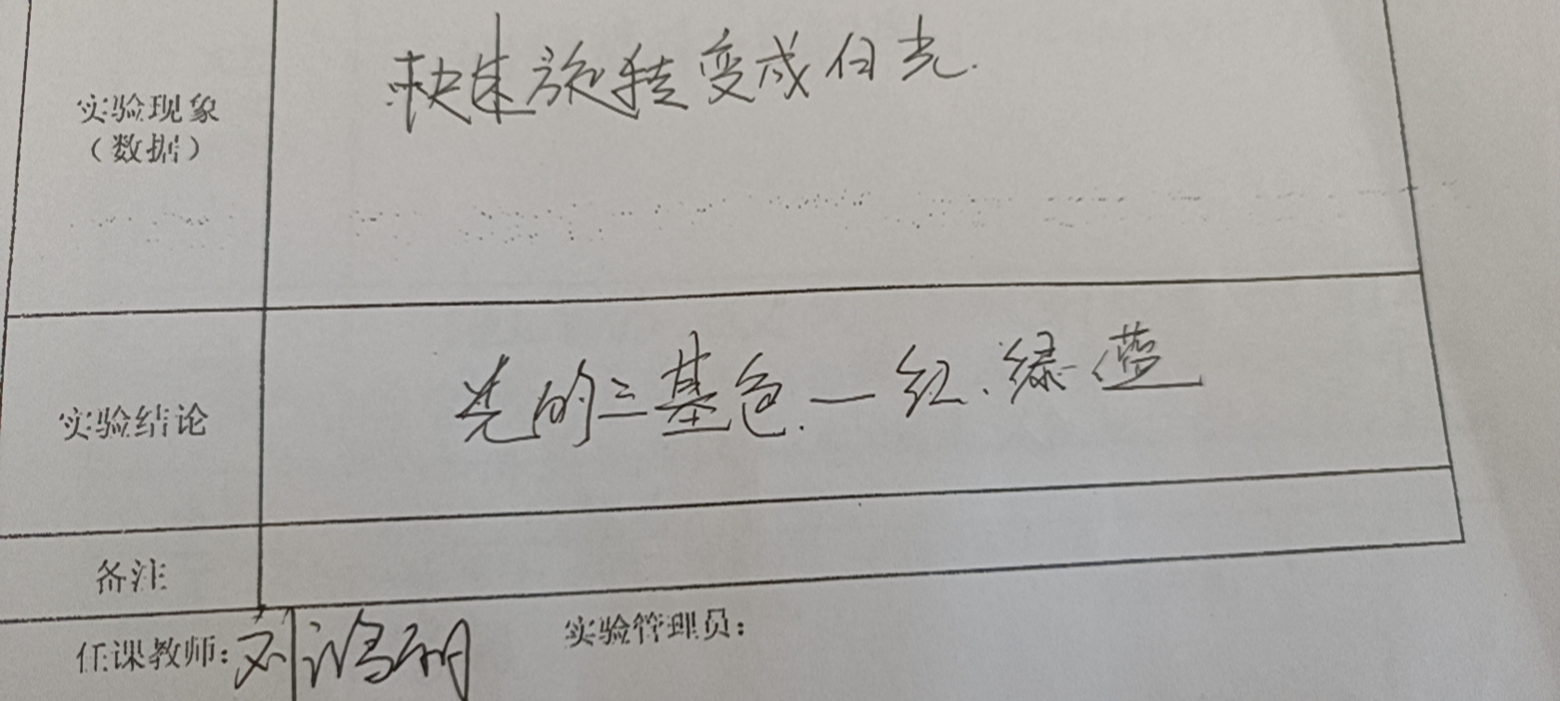 实验现象
（数据）
快速旋转变成白光.
实验结论
光的三基色.—红、绿、蓝
备注
任课教师：刘
实验管理员：